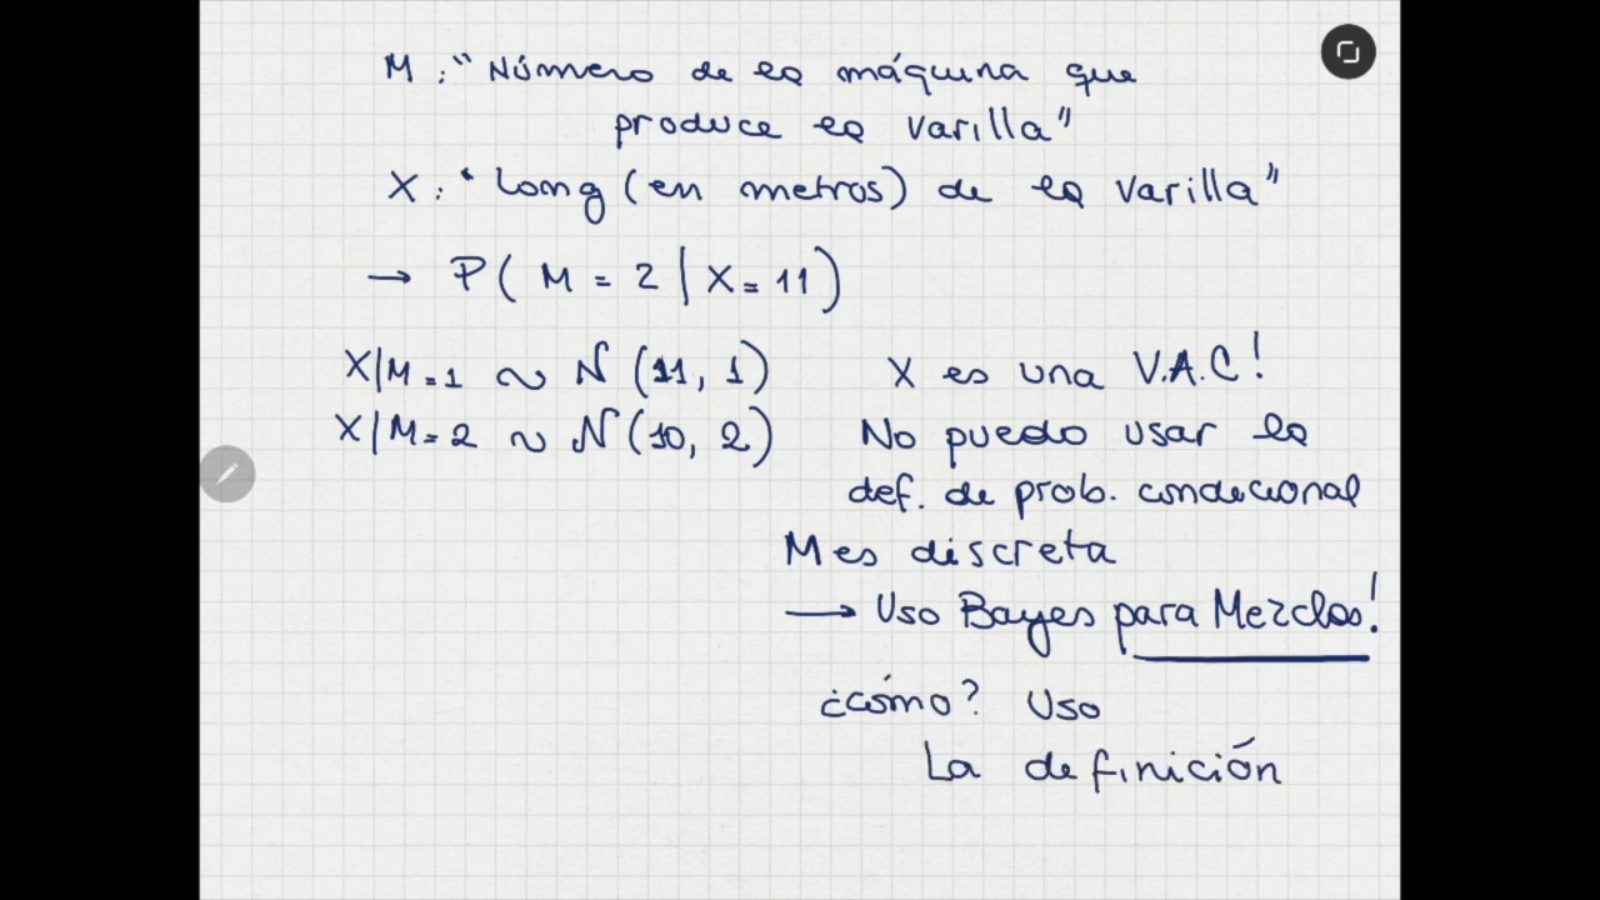 M: "Número de la máquina que
produce la varilla"
X: "Long (en metros) de la varilla"
→ P( M = 2 | X = 11)
X|M=1 ~ N (11, 1)
X|M=2 ~ N (10, 2)
X es una V.A.C!
No puedo usar la
def. de prob. condicional
M es discreta
→ Uso Bayes para Mezclas!
¿cómo? Uso
La definición